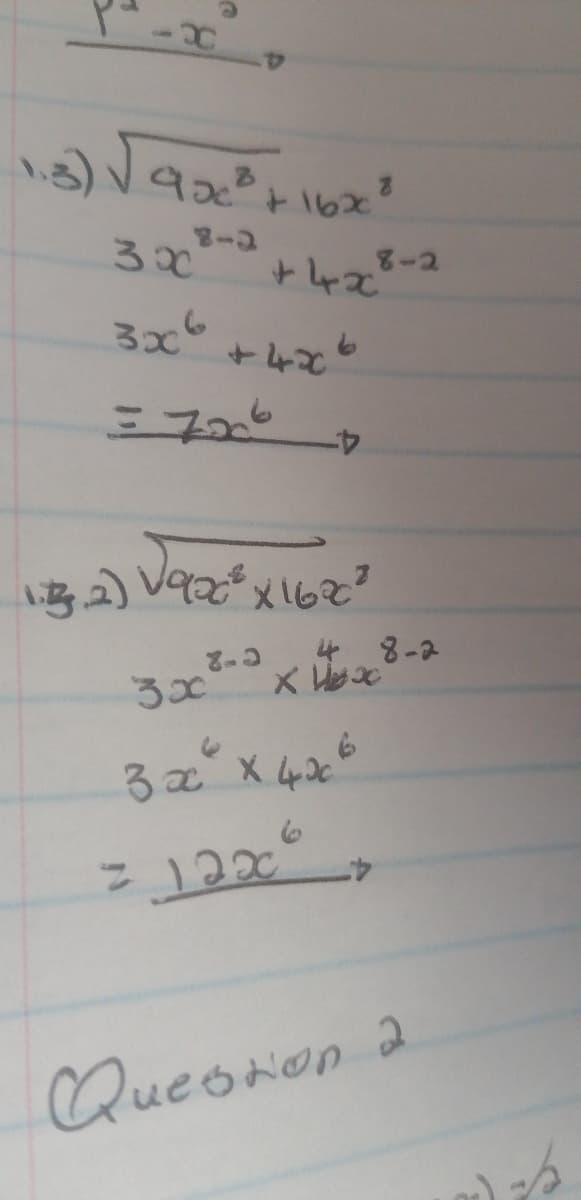 - x²
1.3) √9x⁸ + 16x⁸
3x⁸⁻² + 4x⁸⁻²
3x⁶ + 4x⁶
= 7x⁶
1.3.2) √9x⁸ x 16x⁸
3x⁸⁻² x 4x⁸⁻²
3x⁶ x 4x⁶
= 12x⁶
Question 2